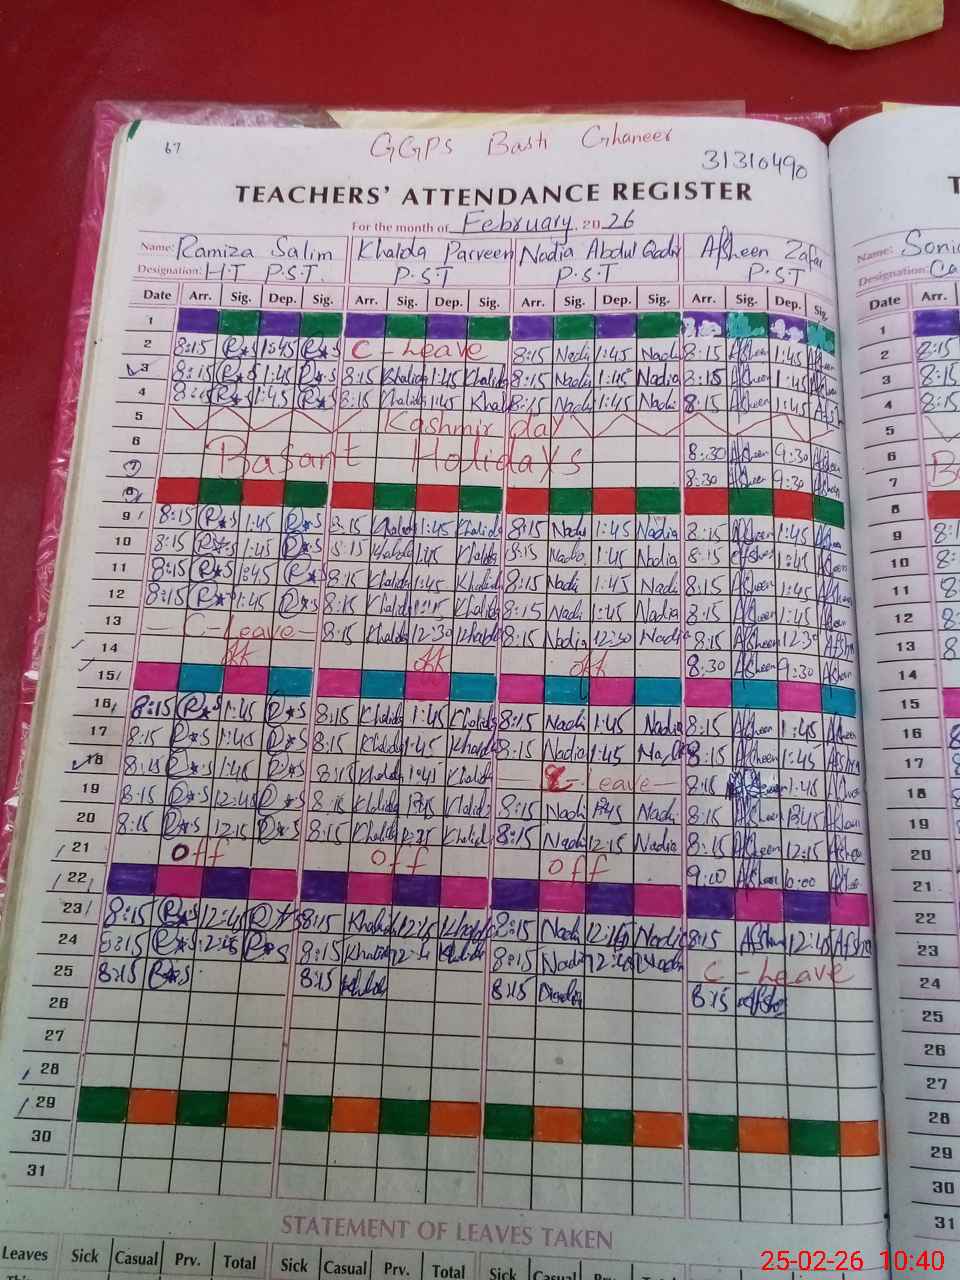 67
GGPS Basti Ghaneer
31310490
TEACHERS' ATTENDANCE REGISTER
For the month of February 2026
Name: Ramiza Salim Khalda Parveen Nadia Abdul Qadir Afsheen Zafar Name: Sonia
Designation: H.T P.S.T. P.S.T P.S.T P.S.T Designation:
Date Arr. Sig. Dep. Sig. Arr. Sig. Dep. Sig. Arr. Sig. Dep. Sig. Arr. Sig. Dep. Sig. Date Arr.
1 1
2 8:15 R*S 1:45 R*S C-Leave 8:15 Nadi 1:45 Nadi 8:15 Afsheen 1:45 2 8:15
3 8:15 R*S 1:45 R*S 8:15 Khalida 1:45 Khalida 8:15 Nadi 1:45 Nadia 8:15 Afsheen 1:45 3
4 8:15 R*S 1:45 R*S 8:15 Khalida 1:45 Khal 8:15 Nadi 1:45 Nadi 8:15 Afsheen 1:45 4
5 Kashmir day 5
6 Basant Holidays 8:30 Afsheen 9:30 Afsheen 6
7 8:30 9:30 7
8 8
9 8:15 R*S 1:45 R*S 8:15 Khalida 1:45 Khalida 8:15 Nadi 1:45 Nadia 8:15 1:45 9
10 8:15 R*S 1:45 R*S 8:15 Khalida 1:45 Khalida 8:15 Nadia 1:45 Nadia 8:15 1:45 10
11 8:15 R*S 1:45 R*S 8:15 Khalida 1:45 Khalida 8:15 Nadi 1:45 Nadi 8:15 Afsheen 1:45 11
12 8:15 R*S 1:45 R*S 8:15 Khalida 8:15 Nadi 1:45 Nadia 8:15 Afsheen 1:45 12
13 C-Leave 8:15 Khalida 12:30 Khalida 8:15 Nadia 12:30 Nadia 8:15 Afsheen 12:30 13
14 off off off 8:30 Afsheen 9:30 Afsheen 14
15 15
16 8:15 R*S 1:45 R*S 8:15 Khalida 1:45 Khalida 8:15 Nadi 1:45 Nadia 8:15 Afsheen 1:45 16
17 8:15 R*S 1:45 R*S 8:15 Khalida 1:45 Khalida 8:15 Nadia 1:45 8:15 Afsheen 1:45 17
18 8:15 R*S 1:45 R*S 8:15 Khalida 1:45 Khalida C-Leave 8:15 1:45 18
19 8:15 R*S 12:45 R*S 8:15 Khalida Khalida 8:15 Nadi Nadi 8:15 19
20 8:15 R*S 12:15 R*S 8:15 Khalida Khalid 8:15 Nadi 12:15 Nadia 8:15 Afsheen 12:15 20
21 off off off 9:00 Afsheen 21
22 22
23 8:15 R*S 12:45 R*S 8:15 8:15 Nadi Nadi 8:15 12:40 23
24 8:15 R*S R*S 8:15 Khalida 8:15 Nadi C-Leave 24
25 8:15 R*S 8:15 8:15 8:15 25
26 26
27 27
28 28
29 29
30 30
31 31
STATEMENT OF LEAVES TAKEN
Leaves Sick Casual Prv. Total Sick Casual Prv. Total Sick Casual
25-02-26 10:40